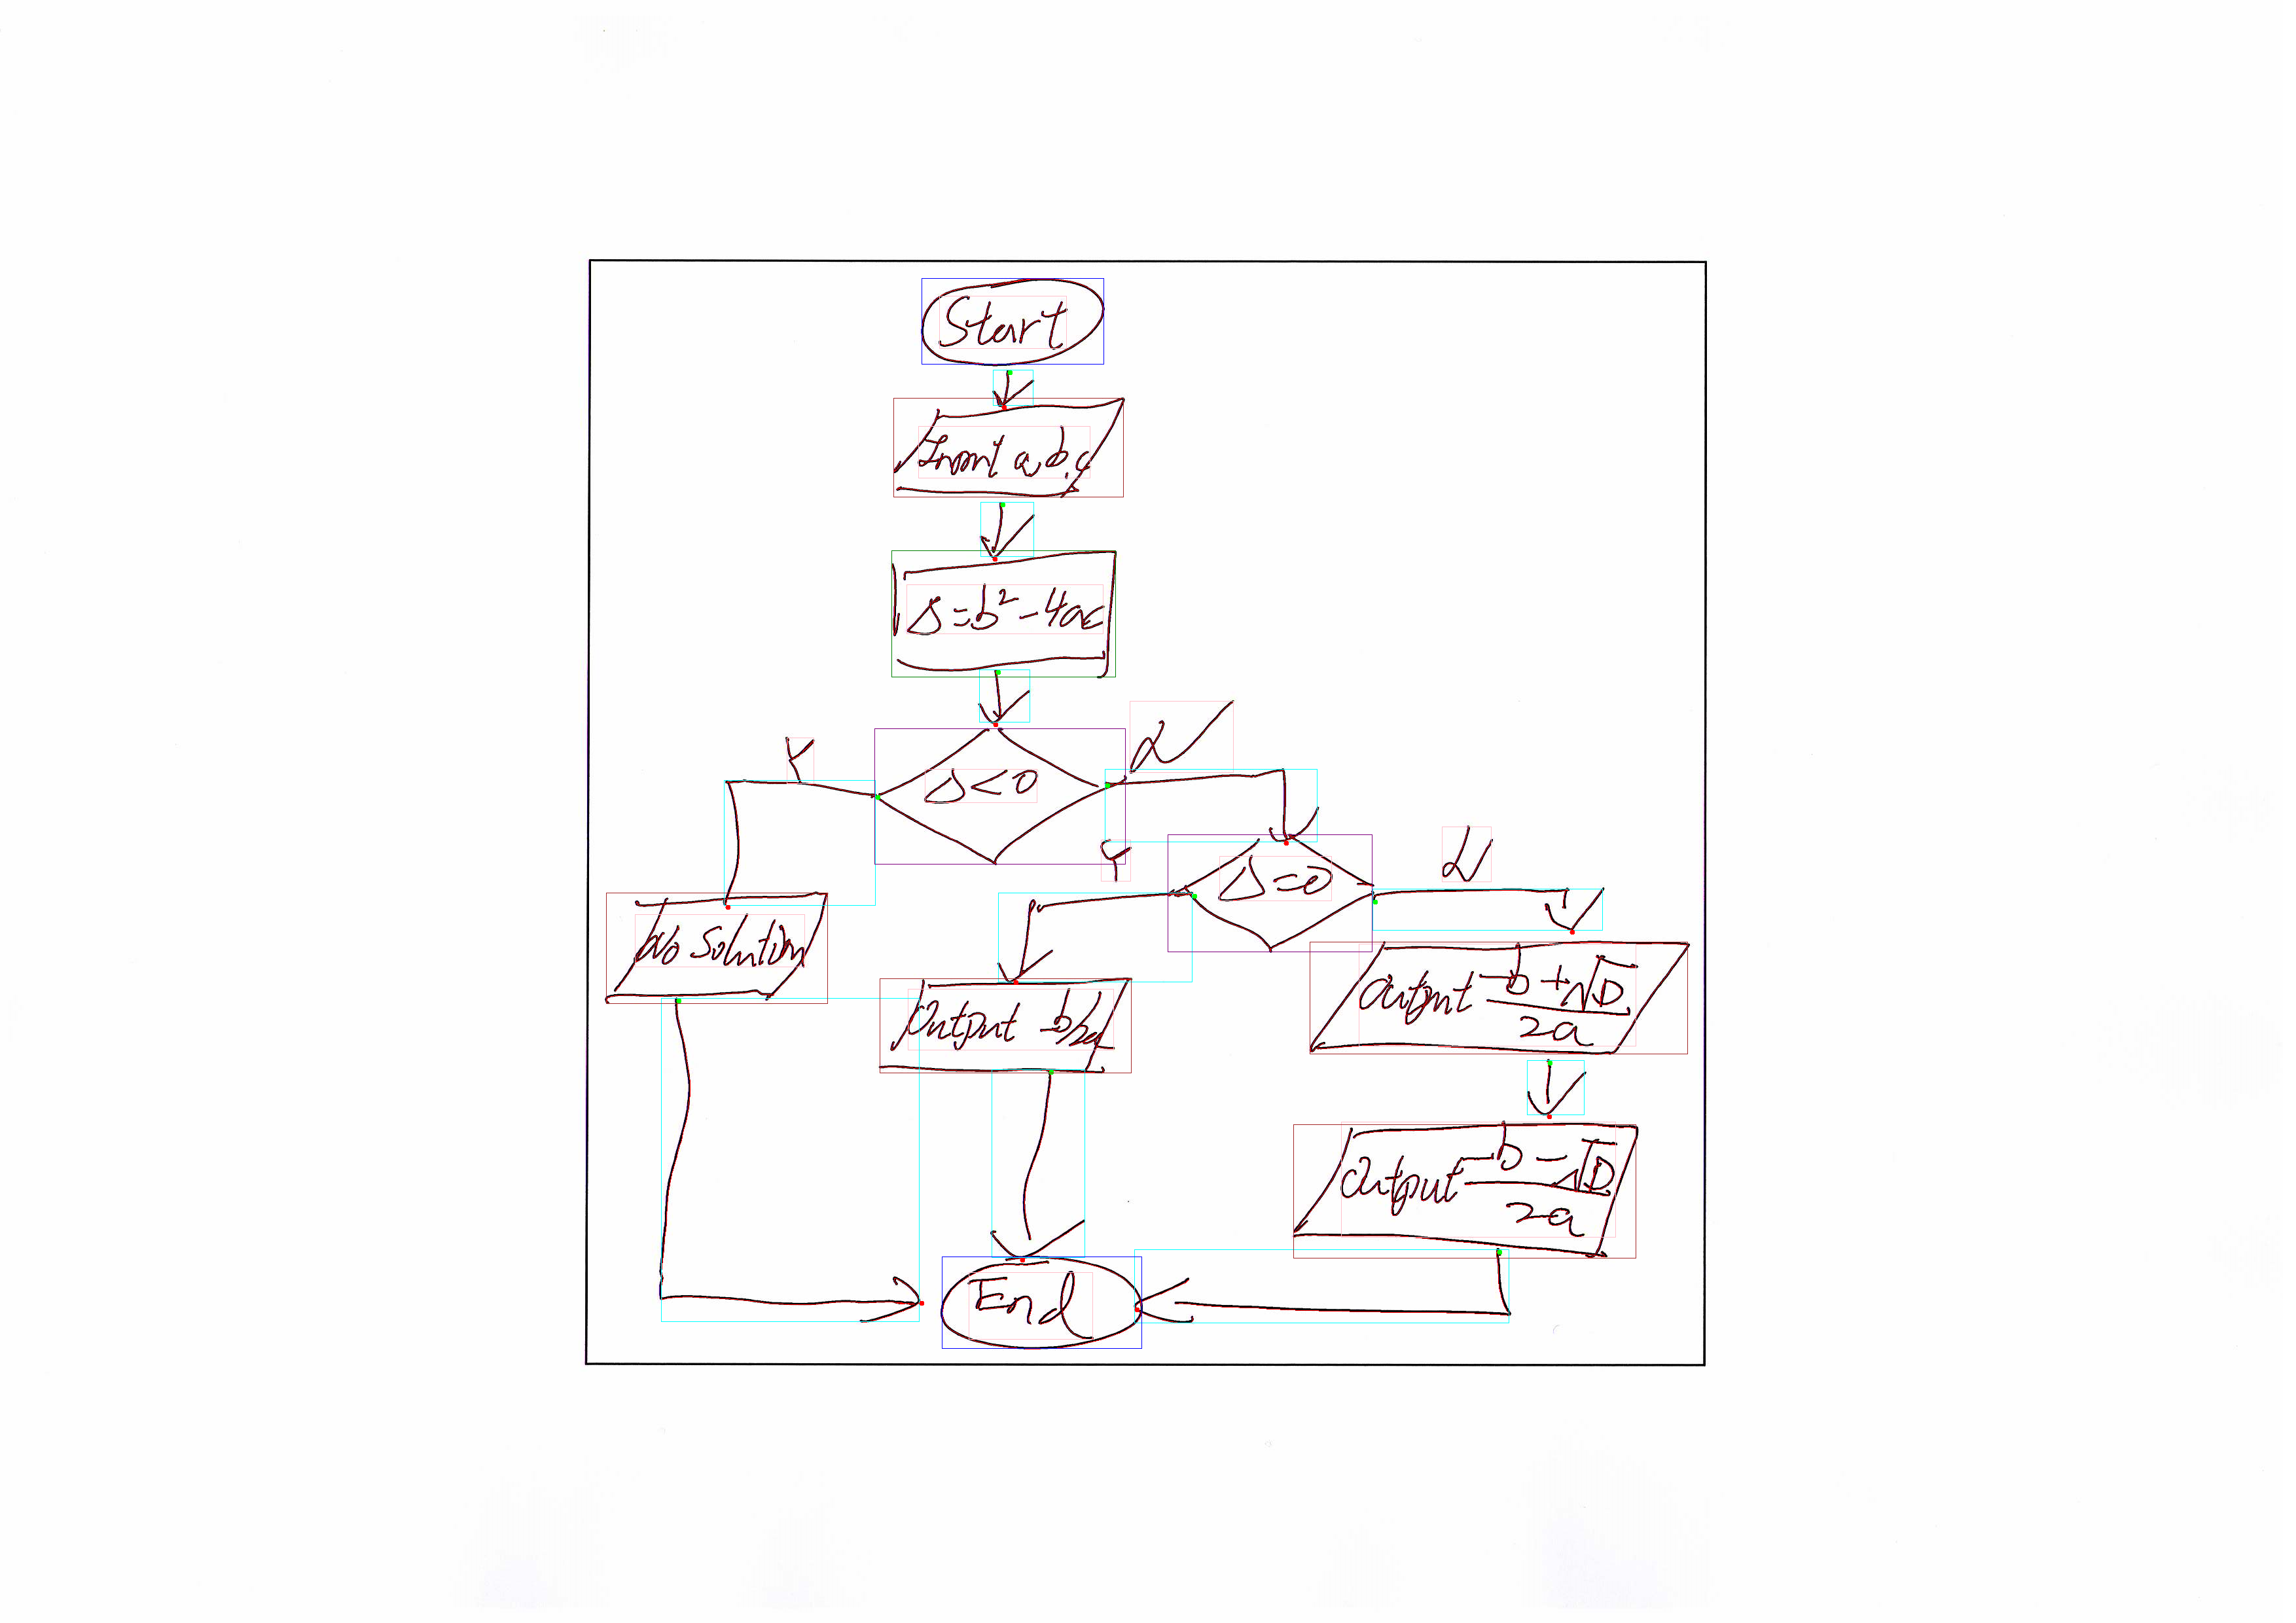 Start
Input a,b,c
Δ=b²-4ac
Y
N
Δ<0
Y
Δ=0
N
No Solution
Output -b/2a
Output (-b+√D)/2a
Output (-b-√D)/2a
End